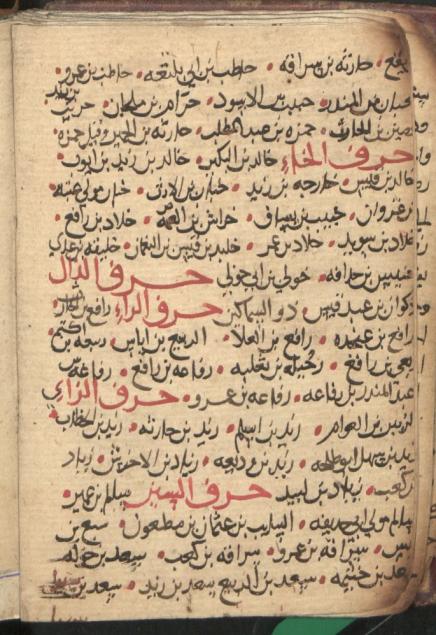 حارثه بن سراقه • حاطب بن ابي بلتعه • حاطب بن عمرو •
بن المنذر • حبيب بن الاسود • حرام بن ملحان • حريث بن زيد
بن الحارث • حمزه بن عبد المطلب • حارثه بن الحمير وقيل حمزه
حرف الخاء خالد بن البكير • خالد بن زيد بن ايوب •
خالد بن قيس • خارجه بن زيد • خباب بن الارت • خباب مولى عتبه
بن غزوان • خبيب بن يساف • خراش بن الصمه • خلاد بن رافع •
خلاد بن سويد • خلاد بن عمرو • خليد بن قيس بن النعمان • خليفه بن عدي
خنيس بن حذافه • خولي بن ابي خولي • حرف الذال
ذكوان بن عبد قيس • ذو الشمالين حرف الراء رافع بن
رافع بن عنجده • رافع بن المعلا • الربيع بن اياس • ربيعه بن اكثم
ربعي بن رافع • رخيله بن ثعلبه • رفاعه بن رافع • رفاعه بن
عبد المنذر • رفاعه بن عمرو • حرف الزاي
الزبير بن العوام • زيد بن اسلم • زيد بن حارثه • زيد بن الخطاب •
زيد بن سهل ابو طلحه • زيد بن وديعه • زياد بن الاخرش • زياد
بن كعب • زياد بن لبيد حرف السين سالم بن عمير •
سالم مولى ابي حذيفه • السايب بن عثمان بن مظعون • سبع بن
قيس • سراقه بن عمرو • سراقه بن كعب • سعد بن خوله
سعد بن خيثمه • سعد بن الربيع سعد بن زيد • سعد بن